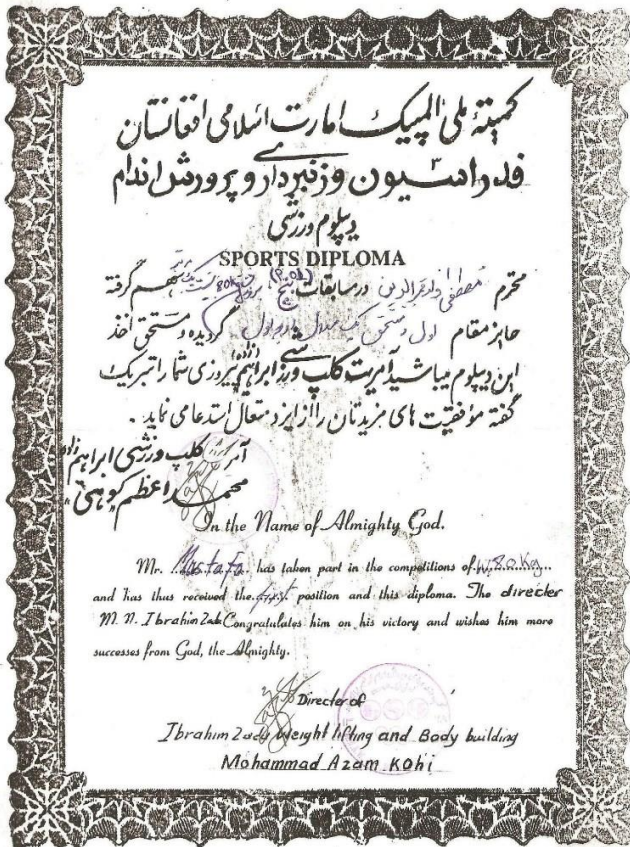 کمیتۀ ملی المپیک امارت اسلامی افغانستان
فدراسیون وزنبرداری و پرورش اندام
دیپلوم ورزشی
SPORTS DIPLOMA
محترم مصطفی ولد در مسابقات 80kg سهم گرفته
حایز مقام اول و مستحق یک مدال گردیده و مستحق اخذ
این دیپلوم میباشید آمریت کلپ ورزشی ابراهیم زاده پیروزی شما را تبریک
گفته مؤفقیت های مزیدتان را از ایزد متعال استدعا می نماید .
آمر کلپ ورزشی ابراهیم زاده
محمد اعظم کوهی
In the Name of Almighty God.
Mr. Mustafa has taken part in the competitions of W.80.Kg...
and has thus received the first position and this diploma. The directer
M. N. Ibrahim Zada Congratulates him on his victory and wishes him more
successes from God, the Almighty.
Directer of
Ibrahim Zady Weight lifting and Body building
Mohammad Azam KOhi